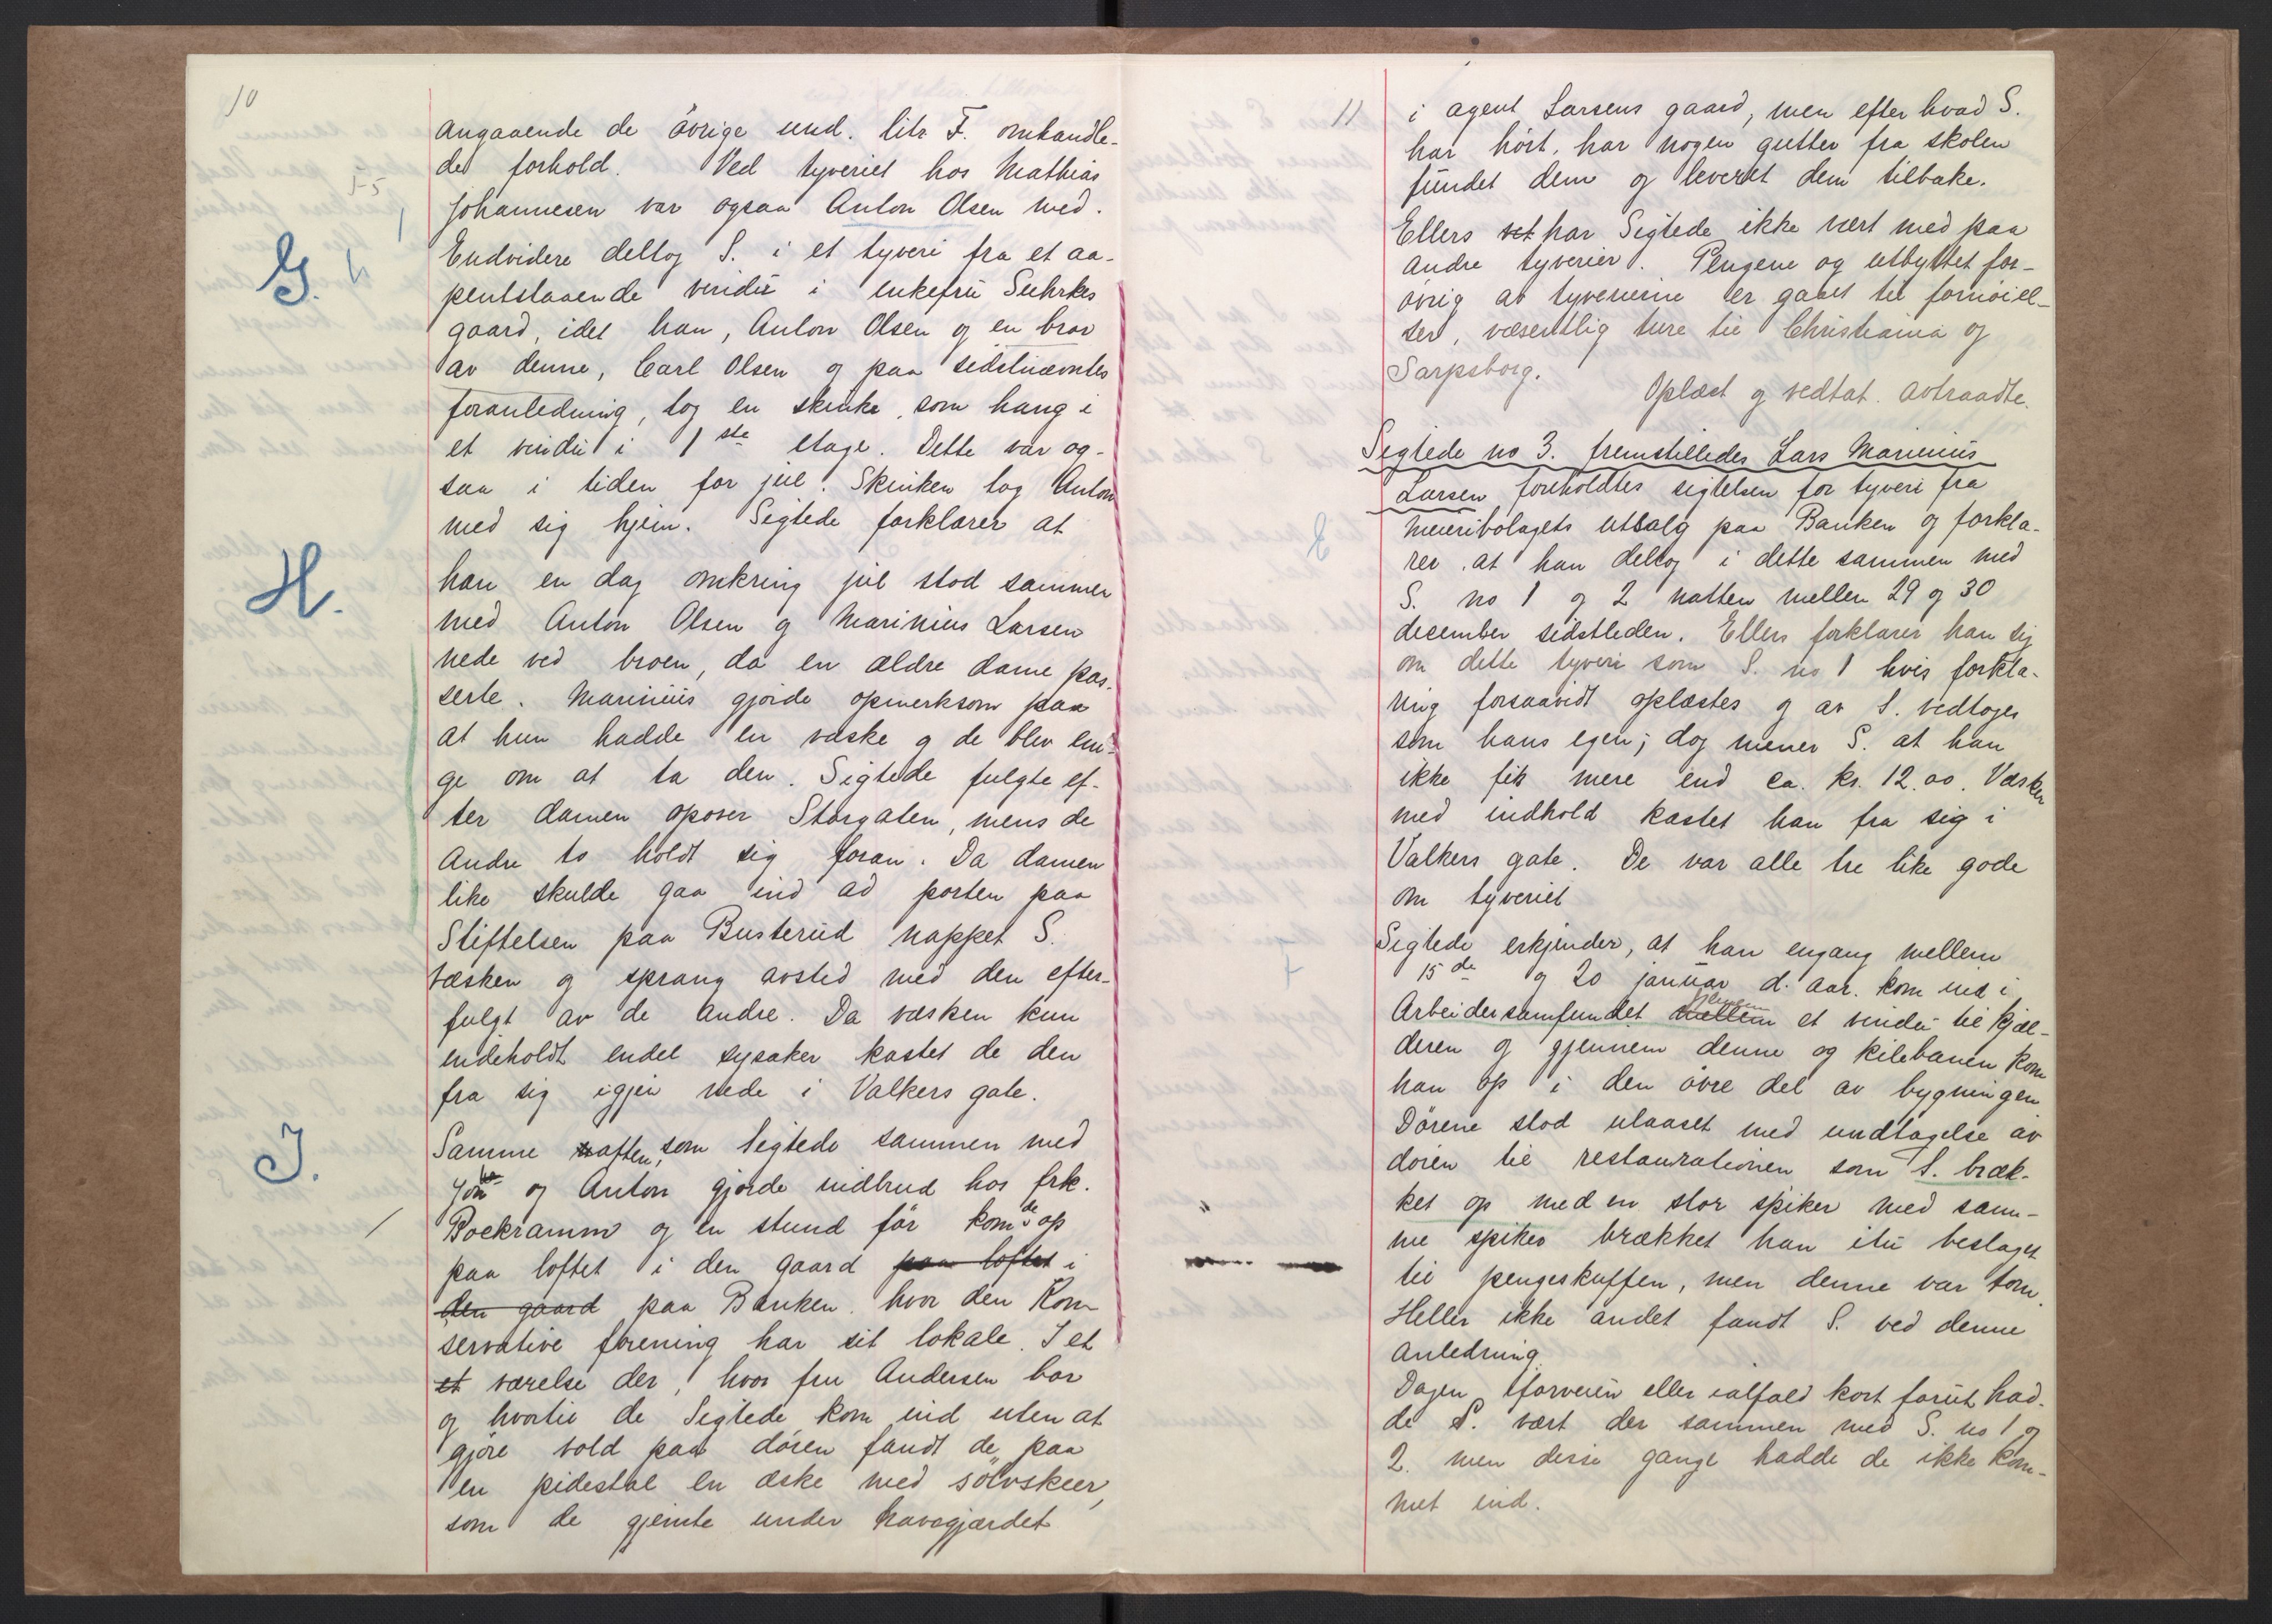 10
angaaende de övrige und. litr F. omhandle-
de forhold. Ved tyveriet hos Mathias
Johannesen var ogsaa Anton Olsen med.
G.
Endvidere deltog S. i et tyveri fra et aa-
pentstaaende vindu i enkefru Suhrkes
gaard, idet han, Anton Olsen og en bror
av denne, Carl Olsen og paa sidstnævntes
foranledning, tog en skinke, som hang i
et vindu i 1ste etage. Dette var og-
saa i tiden for jul. Skinken tog Anton
med sig hjem. Sigtede forklarer at
H.
han en dag omkring jul stod sammen
med Anton Olsen og Marinius Larsen
nede ved broen, da en ældre dame pas-
serte. Marinius gjorde opmerksom paa
at hun hadde en væske og de blev eni-
ge om at ta den. Sigtede fulgte ef-
ter damen opover Storgaten, mens de
andre to holdt sig foran. Da damen
like skulde gaa ind ad porten paa
Stiftelsen paa Busterud nappet S.
væsken og sprang avsted med den efter-
fulgt av de andre. Da væsken kun
indeholdt endel sysaker kastet de den
fra sig igjen nede i Valkers gate.
J.
Samme aften, som Sigtede sammen med
og Anton gjorde indbrud hos frk.
Bockramm og en stund för kom de op
paa loftet i den gaard paa loftet i
den gaard paa Banken hvor den Kon-
servative forening har sit lokale. I et
et værelse der, hvor fru Andersen bor
og hvortil de Sigtede kom ind uten at
gjöre vold paa dören fandt de paa
en pidestal en æske med sölvskeer,
som de gjemte under havegjærdet
11
i agent Larsens gaard, men efter hvad S.
har hört, har nogen gutter fra skolen
fundet dem og leveret dem tilbake.
Ellers har Sigtede ikke vært med paa
andre tyverier. Pengene og utbyttet for-
övrig av tyverierne er gaaet til fornöiel-
ser, væsentlig ture til Christiania og
Sarpsborg.
Oplæst og vedtat. Avtraadte.
Sigtede no 3. fremstilledes Lars Marinius
Larsen foreholdtes sigtelsen for tyveri fra
Meieribolagets utsalg paa Banken og forkla-
rer at han deltog i dette sammen med
S. no 1 og 2 natten mellem 29 og 30
december sidstleden. Ellers forklarer han sig
om dette tyveri som S. no 1 hvis forkla-
ring forsaavidt oplæstes og av S. vedtoges
som hans egen; dog mener S. at han
ikke fik mere end ca. kr. 12.00. Væsken
med indhold kastet han fra sig i
Valkers gate. De var alle tre like gode
om tyveriet
Sigtede erkjender, at han engang mellem
15de og 20 januar d. aar. kom ind i
Arbeidersamfundet mellem gjennem et vindu til kjæl-
deren og gjennem denne og kilebanen kom
han op i den övre del av bygningen
Dörene stod ulaaset med undtagelse av
dören til restaurationen som S. bræk-
ket op med en stor spiker med sam-
me spiker brækket han itu beslaget
til pengeskuffen, men denne var tom.
Heller ikke andet fandt S. ved denne
anledning
Dagen iforveien eller ialfald kort forut had-
de S. vært der sammen med S. no 1 og
2. men desse gange hadde de ikke kom-
met ind.